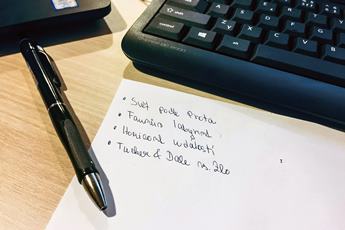 • Svět podle Prota
• Faunův labyrint
• Horizont událostí
• Tucker & Dale vs. Zlo